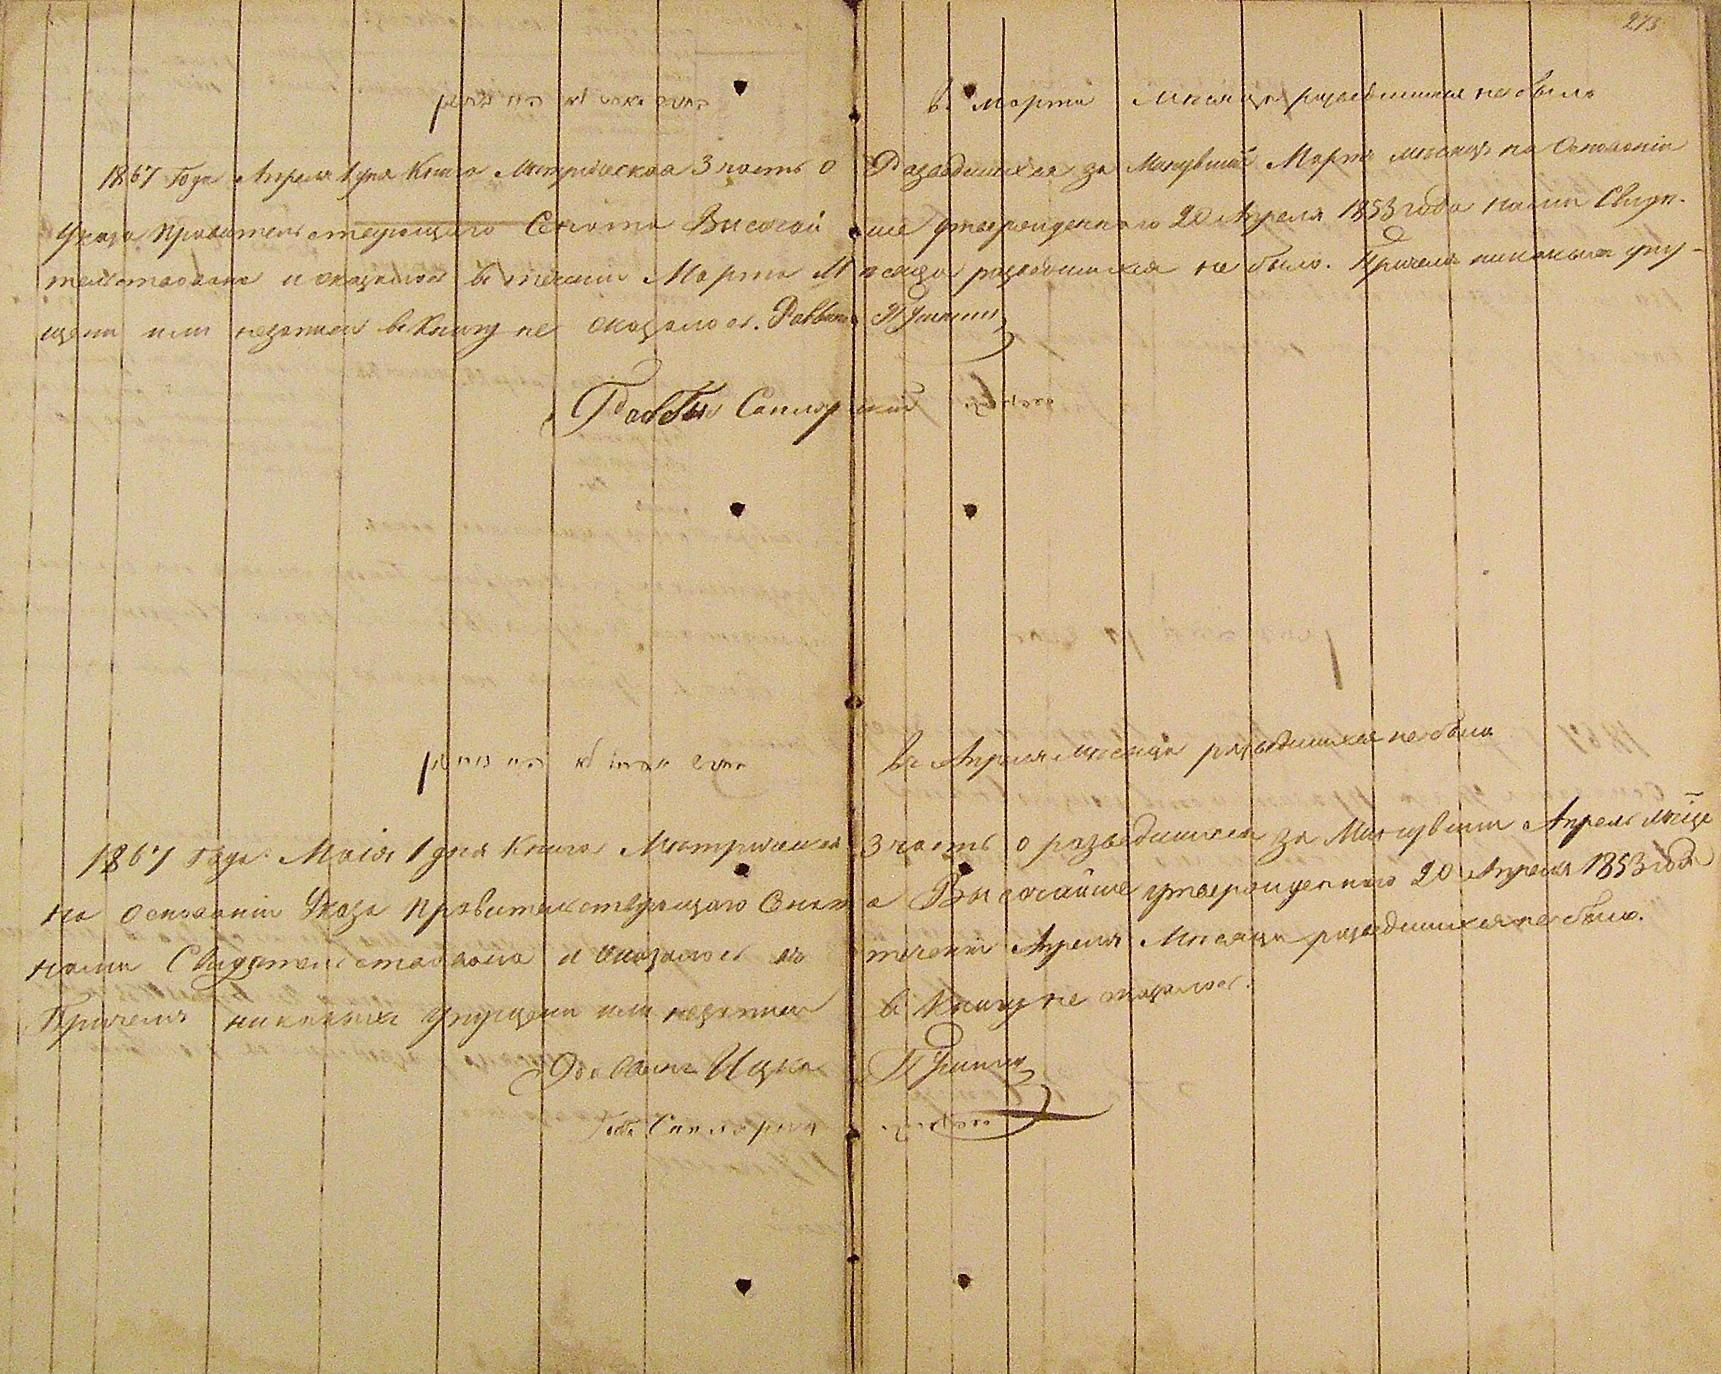 273
בחודש מארט לא היו גרושין
въ Марта Месяца разведшихся не было
1867 Года Апреля 1 дня Книга Метрическая 3 часть о Разведшихся за Минувший Мартъ месяцъ на Основаніи
Указа Правительствующаго Сената Высочайше утвержденнаго 20 Апреля 1853 года нами Свидѣ-
тельствована и оказалось въ теченіи Марта Месяца разведшихся не было. Причемъ никакихъ упу-
щеній или незаписи въ Книгу не оказалось. Раввинъ
Раввинъ
בחודש אפריל לא היו גרושין
въ Апреля Месяца разведшихся не было
1867 Года Маія 1 дня Книга Метрическая 3 часть о разведшихся за Минувший Апрель Мѣсяцъ
на Основаніи Указа Правительствующаго Сената Высочайше утвержденнаго 20 Апреля 1853 года
нами Свидетельствована и оказалось въ теченіи Апреля Месяца разведшихся не было.
Причемъ никакихъ упущеній или незаписи въ Книгу не оказалось.
Раввинъ Ицка